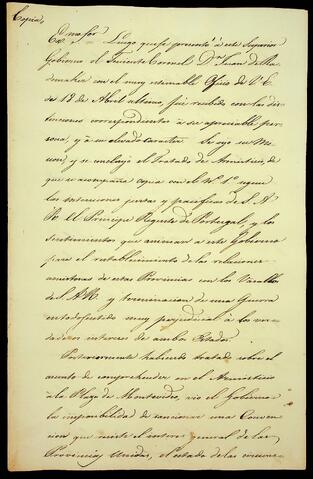 Copia,
Exmo for Luego que se presentó á este Superior
Gobierno el Teniente Coronel Dn. Juan de Ra-
demaker con el muy estimable Oficio de V.E.
de 13 de Abril ultimo, fué recibido con las dis-
tinciones correspondientes á su apreciable per-
sona, y á su elevado caracter. Se oyo su Mi-
sion, y se concluyó el Tratado de Armisticio, de
que se acompaña copia con el N.º 1.º segun
las intenciones justas y pacificas de S.A
R. El Principe Regente de Portugal, y los
Sentimientos que animan a este Gobierno
para el restablecimiento de las relaciones
amistosas de estas Provincias con los Vasallos
de S.A.R. y terminacion de una Guerra
en todo sentido muy perjudicial á los ver-
daderos intereses de ambos Estados.
Posteriormente habiendo tratado sobre el
asunto de comprehender en el Armisticio
á la Plaza de Montevideo, vio el Gobierno
la imposibilidad de sancionar una Conven-
cion que resiste el interes general de las
Provincias Unidas, el estado de las circuns-